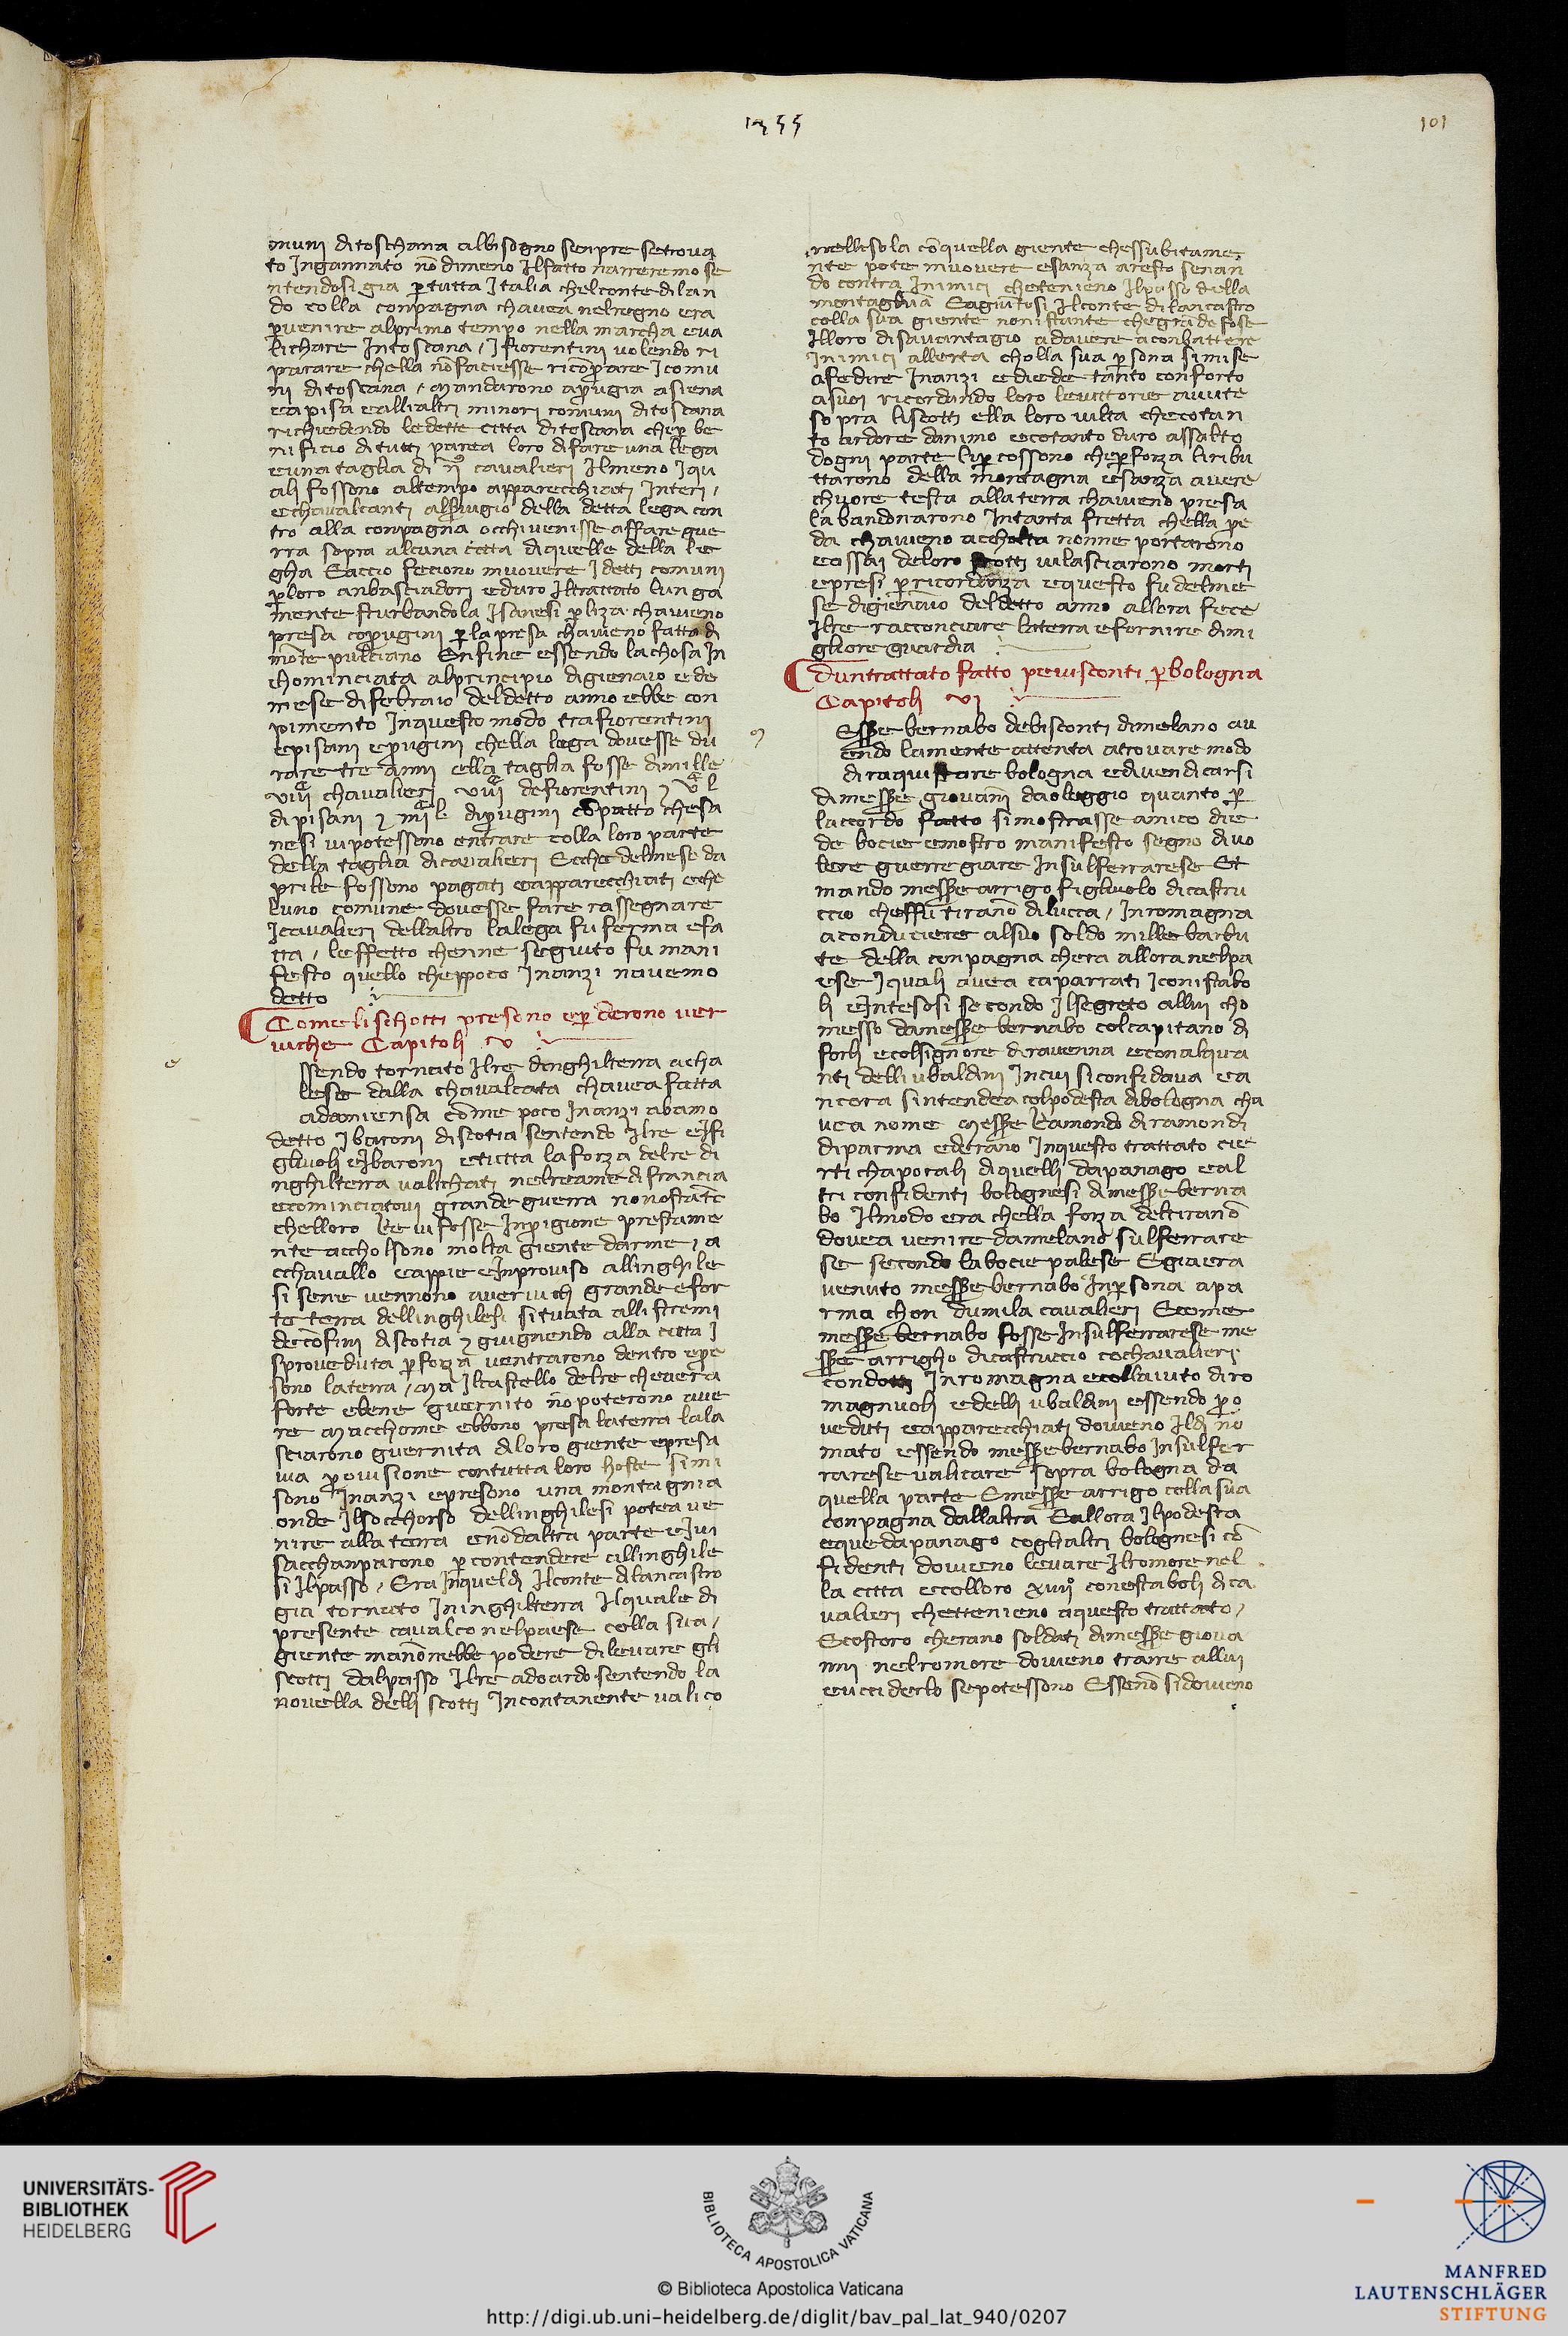 1355
101
muni di toschana albisogno senpre setrova
to Ingannato nō dimeno Ilfatto narreremo se
ntendosi gia ꝑ tutta Italia chelconte dilan
do colla conpagna chavea nelregno era
ꝑvenire alprimo tempo nella marcha eva
lichare Intoscana / I fiorentini volendo ri
parare chella nō faciesse ricōprare I comu
ni di toscana / mandarono aꝑugia asiena
eapisa ealli altri minori comuni ditoscana
richiedendo ledette citta ditoscana cheꝑ be
nificio di tutti parea loro difare una lega
euna taglia di cavalieri Ilmeno I qu
ali fossono altempo apparecchiati Interi /
echavalcanti alservigio della detta lega con
tro alla conpagna occhivenisse affare gue
rra sopra alcuna citta diquelle della le
gha Eaccio feciono muovere I detti comuni
ꝑloro anbasciadori eduro Iltrattato lunga
mente sturbandola Isanesi ꝑ liza chavieno
presa coꝑugini ꝑ la presa chavieno fatta di
mōte pulciano Enfine essendo lachosa In
chominciata alprincipio digienaio ede
mese difebraio deldetto anno ebbe con
pimento Inquesto modo tra fiorentini
episani eꝑugini chella lega dovesse du
rare tre anni ella taglia fosse dimille
viii chavalieri viii defiorentini ⁊ v l
dipisani ⁊ iii l diꝑugini cōpatto chesa
nesi vipotessono entrare colla loro parte
della taglia dicavalieri Ecche delmese da
prile fossono pagati eapparecchiati ecche
luno comune dovesse fare rassegnare
Icavalieri dellaltro lalega fu ferma efa
tta / leffetto chenne seguito fu mani
festo quello cheppoco Inanzi navemo
detto
Come lischotti presono eꝑderono ver
viche Capitoli v
e
ssendo tornato Ilre donghilterra acha
lese dalla chavalcata chavea fatta
adamiensa cōme poco Inanzi abamo
detto Ibaroni discotia sentendo Ilre eIfi
gliuoli eIbaroni etutta laforza delre di
nghilterra valichati nelreame difrancia
ecominciatovi grande guerra nonostāte
chelloro Re vifosse Inprigione prestame
nte accholsono molta giente darme / a
cchavallo eappie eInproviso allinghile
si sene vennono averuich grande efor
te terra dellinghilesi situata allistremi
decōfini discotia ⁊ giugnendo alla citta I
sproveduta ꝑ forza ventrarono dentro epre
sono laterra / ma Ilcastello delre cheuera
forte ebene guernito nō poterono ave
re Macchome ebbono presa laterra lala
sciarono guernita diloro giente epresa
via ꝓvisione contutta loro hoste simi
sono Inanzi epresono una montagnia
onde Ilsocchorso dellinghilesi potea ve
nire alla terra enō daltra parte eIvi
sacchanparono ꝑ contendere allinghile
si Ilpasso / Era Inqueldi Ilconte dilancastro
gia tornato Ininghilterra Ilquale di
presente cavalco nelpaese colla sua /
giente manōnebbe podere dilevare gli
scotti dalpasso Ilre adoardo sentendo la
novella delli scotti Incontanente valico
nellisola cōquella giente chessubitame
nte pote muovere esanza aresto senan
do contra Inimici chetenieno Ilpasso della
montagnia Eagiuntosi Ilconte dilancastro
colla sua giente nonistante chegrāde fose
Illoro disavantagio adavere aconbattere
Inimici allerta cholla sua ꝑsona simise
afedire Inanzi ediede tanto conforto
asuoi ricordando loro levittorie avute
sopra liscotti ella loro vilta checotan
to ardore danimo ecotanto duro assalto
dogni parte liꝑcossono cheꝑforza liribu
ttarono della montagna esanza avere
chuore testa allaterra chavieno presa
labandonarono Intanta fretta chella pre
da chavieno accholta nonne portarono
eassai deloro scotti vilasciarono morti
epresi ꝑricordanza equesto fu delme
se digienaio deldetto anno allora fece
Ilre racconciare laterra efornire dimi
gliore guardia
Duntrattato fatto pevisconti ꝑbologna
Capitoli vi
Esse bernabo debisconti dimelano av
endo lamente attenta atrovare modo
diraquistare bologna edivendicarsi
dimesse giovani daoleggio quanto ꝑ
laccordo fatto simostrasse amico die
de bocie emostro manifesto segno divo
lere guerregiare Insulferrarese Et
mando messe arrigo figliuolo dicastru
ccio cheffu tirano dilucca / Inromagna
aconduciere alsuo soldo mille barbu
te della conpagna chera allora nelpa
ese Iquali avea caparrati Iconistabo
li eIntesosi secondo Ilsegreto allui cho
messo damesse bernabo colcapitano di
forli ecolsignore diravenna econalqua
nti delliubaldini Incui siconfidava ea
ncora sintendea colpodesta dibologna cha
vea nome Messe Ramondo diramondi
diparma ederano Inquesto trattato cie
rti chaporali diquelli dapanago eal
tri confidenti bolognesi dimesse berna
bo Ilmodo era chella forza deltiranō
dovea venire damelano sulferrare
se secondo labocie palese Egiaera
venuto messe bernabo Inꝑsona apa
rma chon dumila cavalieri Ecome
messe bernabo fosse Insulferrarese me
sse arrigho dicastruccio cochavalieri
condotti Inromagna ecollaiuto diro
magnuoli edelli ubaldini essendo ꝓ
veduti eapparecchiati dovieno Ildi no
mato essendo messe bernabo Insulfer
rarese valicare sopra bologna da
quella parte Emesse arrigo colla sua
conpagna dallaltra Eallora Ilpodesta
equedapanago cogli altri bolognesi cō
fidenti dovieno levare Ilromore nel
la citta eccolloro xviii conestaboli dica
valieri chettenieno aquesto trattato /
Ecostoro cherano soldati dimesse giova
nni nelromore dovieno trarre allui
euccíderlo sepotessono Essenō sidovieno
UNIVERSITÄTS-
BIBLIOTHEK
HEIDELBERG
BIBLIOTECA APOSTOLICA VATICANA
© Biblioteca Apostolica Vaticana
http://digi.ub.uni-heidelberg.de/diglit/bav_pal_lat_940/0207
MANFRED
LAUTENSCHLÄGER
STIFTUNG